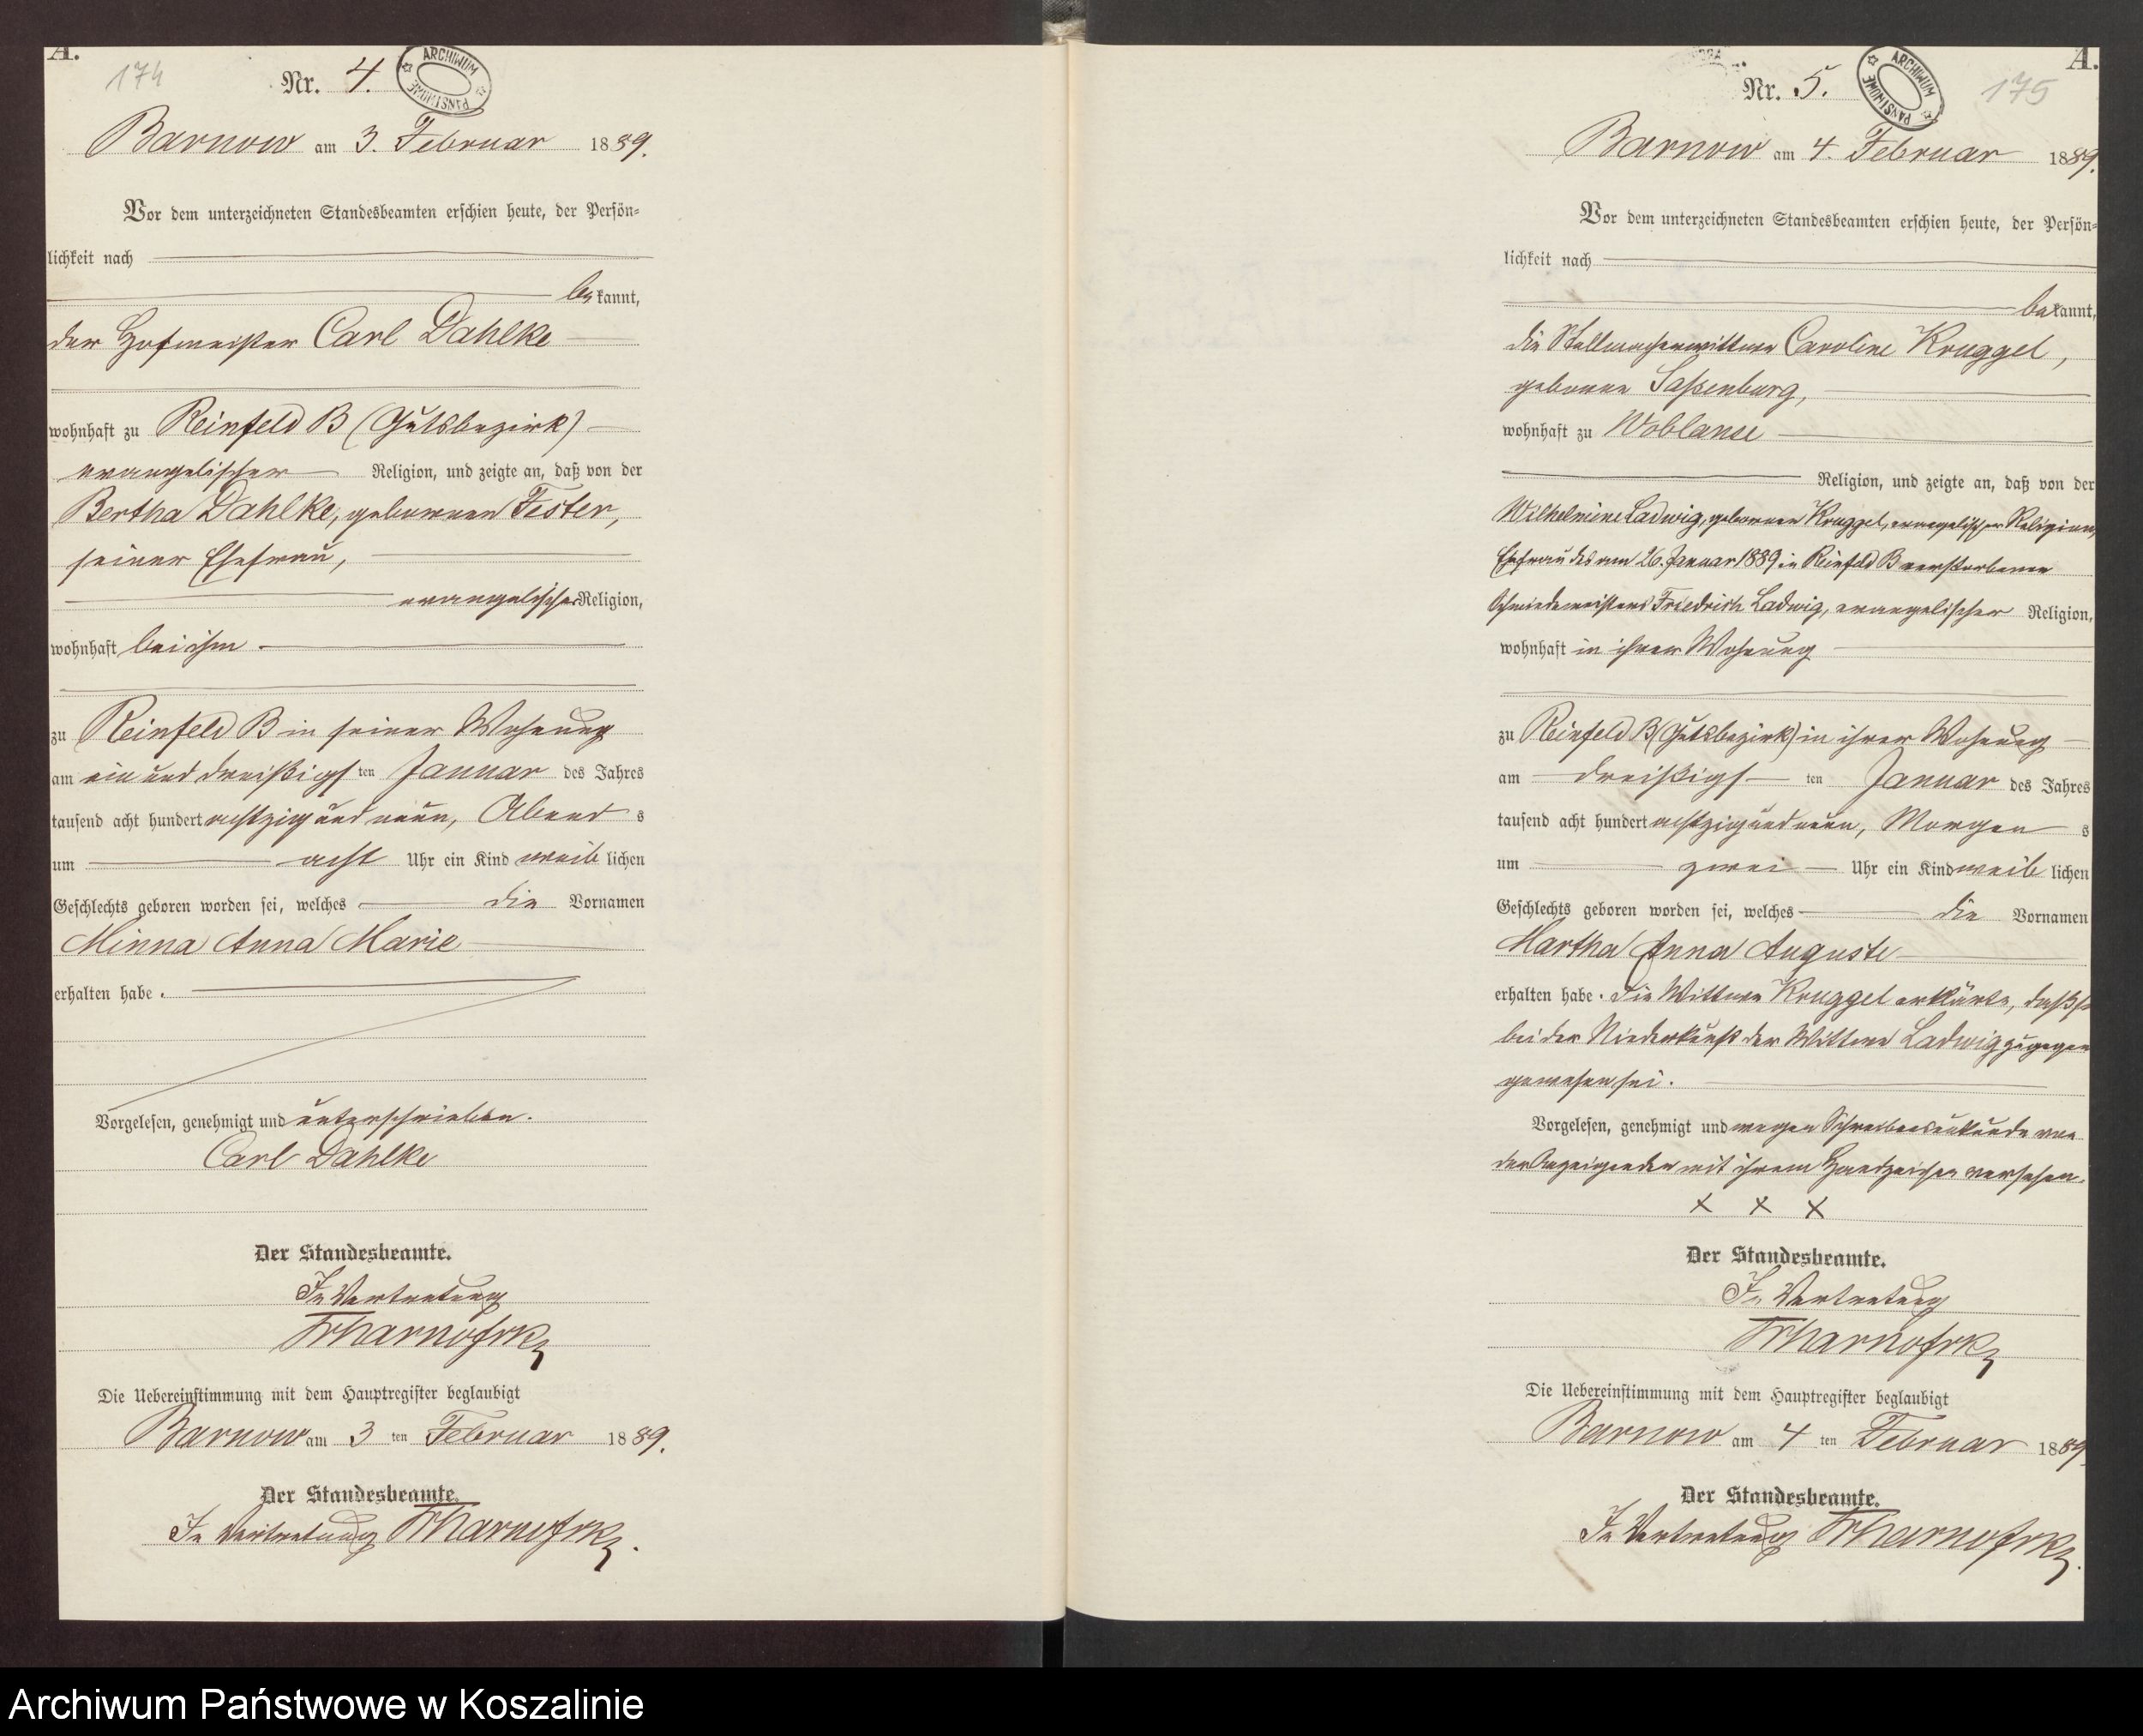 A.
174
Nr. 4.
ARCHIWUM PAŃSTWOWE
Barnow am 3. Februar 1889.
Vor dem unterzeichneten Standesbeamten erschien heute, der Persön=
lichkeit nach
bekannt,
der Hofmeister Carl Dahlke
wohnhaft zu Reinfeld B (Gutsbezirk)
evangelischer Religion, und zeigte an, daß von der
Bertha Dahlke, geborenen Fester,
seiner Ehefrau,
evangelischer Religion,
wohnhaft bei ihm
zu Reinfeld B in seiner Wohnung
am ein und dreißigsten Januar des Jahres
tausend acht hundert achtzig und neun, Abends
um acht Uhr ein Kind weiblichen
Geschlechts geboren worden sei, welches die Vornamen
Minna Anna Marie
erhalten habe.
Vorgelesen, genehmigt und unterschrieben.
Carl Dahlke
Der Standesbeamte.
In Vertretung
Die Uebereinstimmung mit dem Hauptregister beglaubigt
Barnow am 3 ten Februar 1889.
Der Standesbeamte.
In Vertretung
A.
175
Nr. 5.
ARCHIWUM PAŃSTWOWE
Barnow am 4. Februar 1889.
Vor dem unterzeichneten Standesbeamten erschien heute, der Persön=
lichkeit nach
bekannt,
die Stellmacherwittwe Caroline Kruggel,
geborene Saßenburg,
wohnhaft zu Woblanse
Religion, und zeigte an, daß von der
Wilhelmine Ladwig, geborenen Kruggel, evangelischer Religion,
Ehefrau des am 26. Januar 1889 in Reinfeld B verstorbenen
Schmiedemeisters Friedrich Ladwig, evangelischer Religion,
wohnhaft in ihrer Wohnung
zu Reinfeld B (Gutsbezirk) in ihrer Wohnung
am dreißigsten Januar des Jahres
tausend acht hundert achtzig und neun, Morgens
um zwei Uhr ein Kind weiblichen
Geschlechts geboren worden sei, welches die Vornamen
Martha Anna Auguste
erhalten habe. Die Wittwe Kruggel erklärte, daß sie
bei der Niederkunft der Wittwe Ladwig zugegen
gewesen sei.
Vorgelesen, genehmigt und wegen Schreibensunkunde von
der Anzeigenden mit ihrem Handzeichen versehen.
x x x
Der Standesbeamte.
In Vertretung
Die Uebereinstimmung mit dem Hauptregister beglaubigt
Barnow am 4 ten Februar 1889.
Der Standesbeamte.
In Vertretung
Archiwum Państwowe w Koszalinie